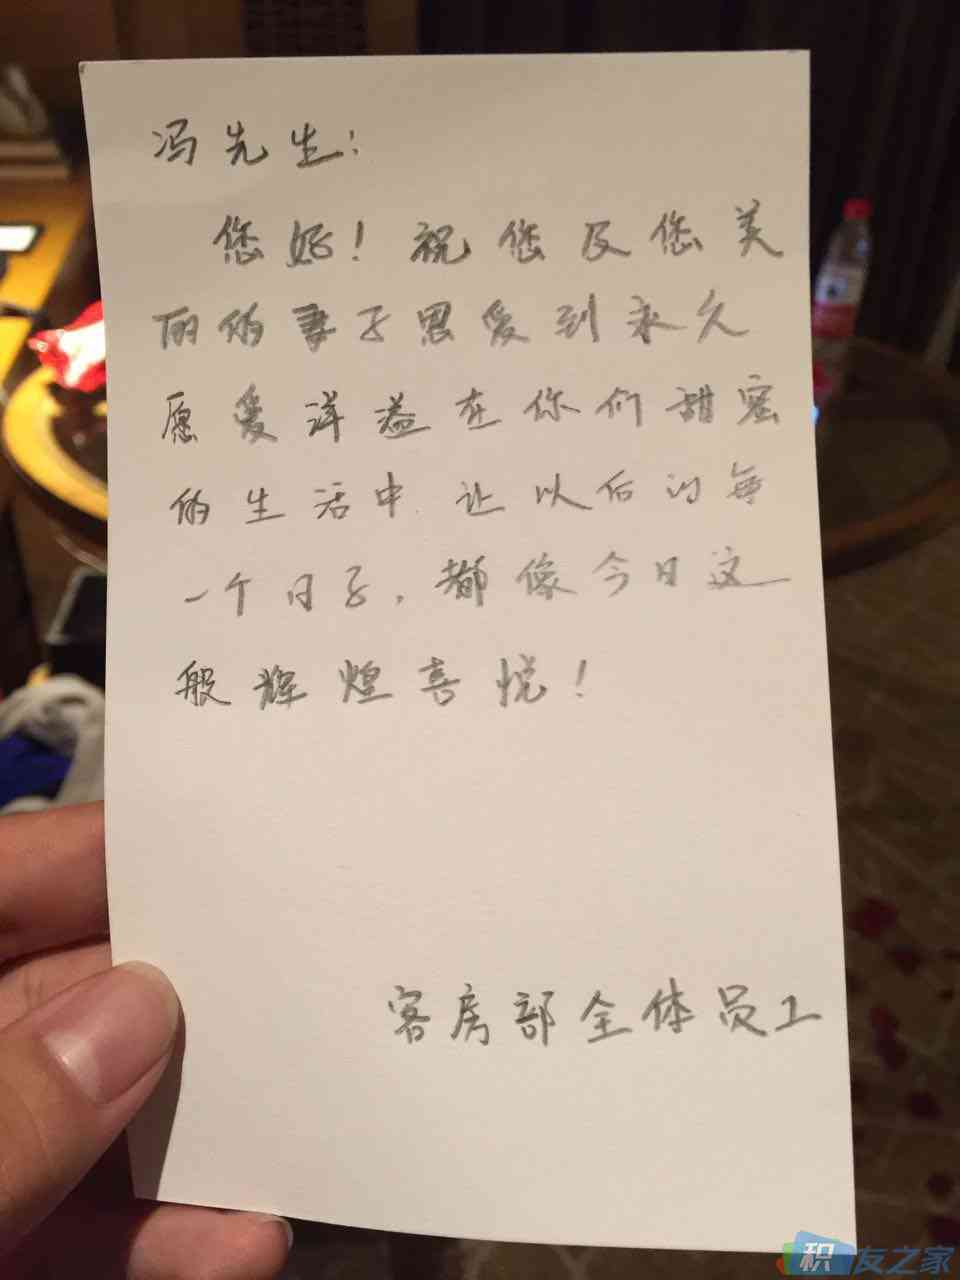 冯先生：
您好！祝您及您美
丽的妻子恩爱到永久
愿爱洋溢在你们甜蜜
的生活中 让以后的每
一个日子，都像今日这
般辉煌喜悦！
客房部全体员工
积友之家